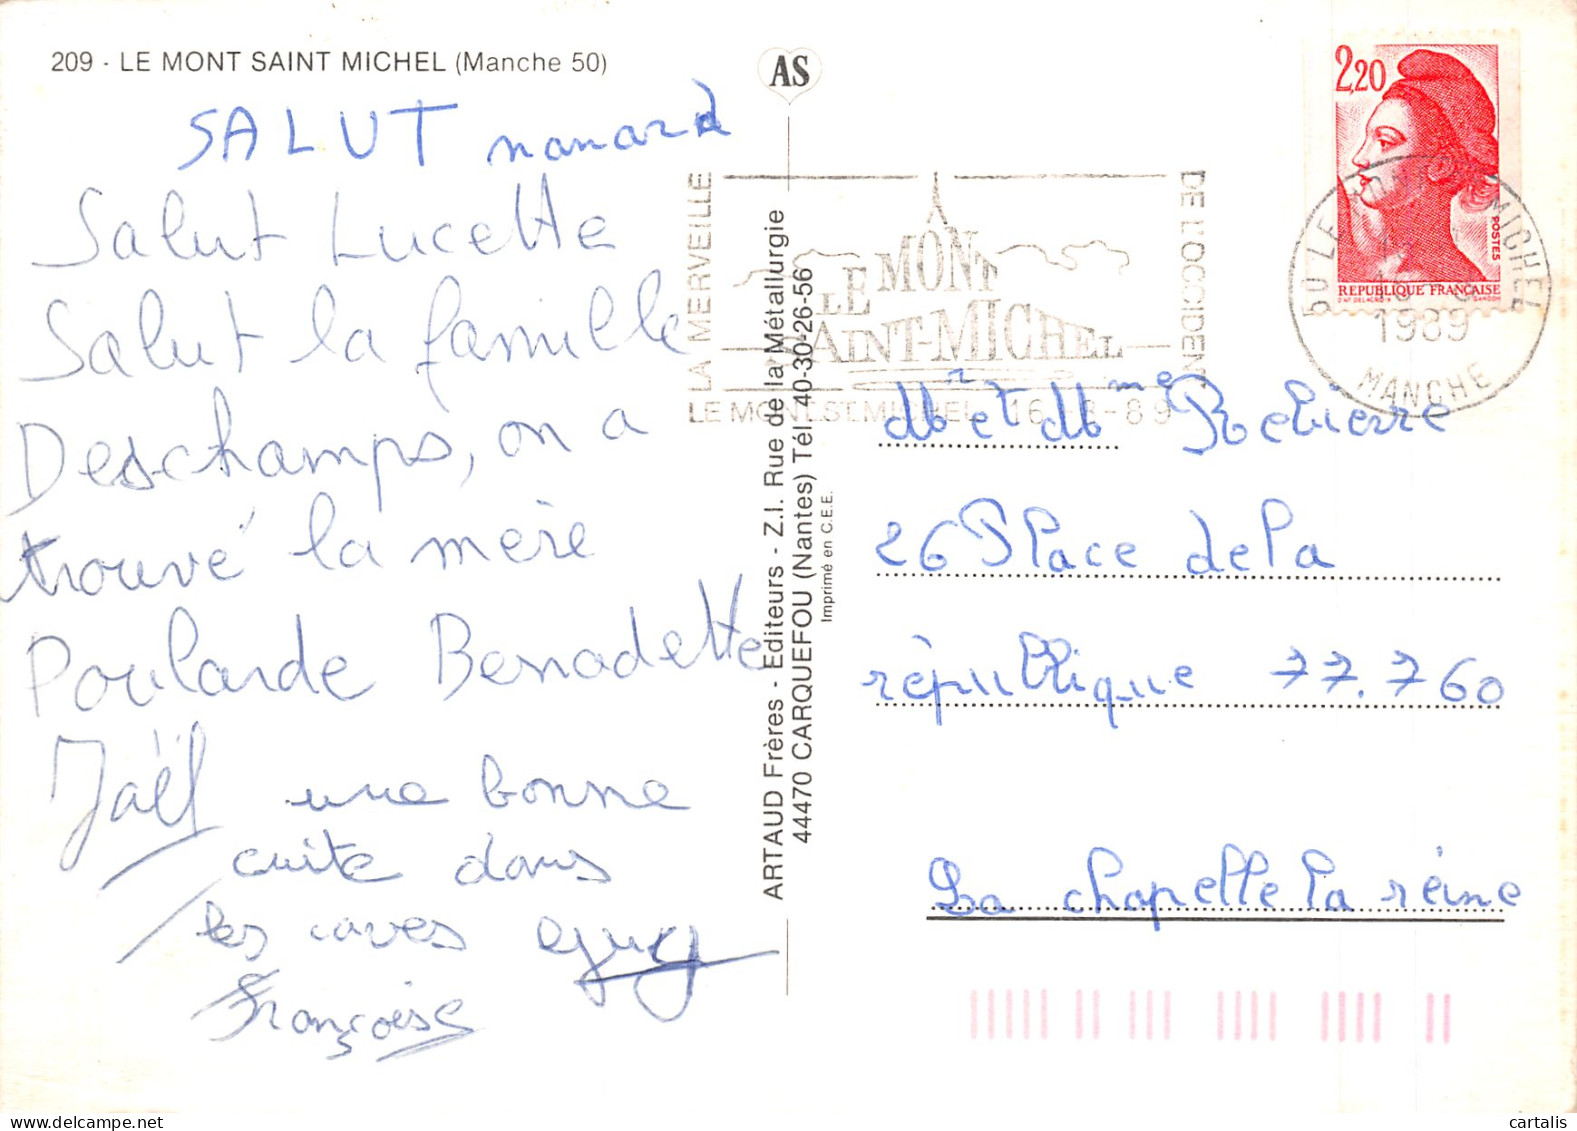 209 - LE MONT SAINT MICHEL (Manche 50)
AS
SALUT nanard
Salut Lucette
Salut la famille
Deschamps, on a
trouvé la mère
Poularde Bernadette
Jaël une bonne
cuite dans
les caves
Françoise
ARTAUD Frères - Editeurs - Z.I. Rue de la Métallurgie
44470 CARQUEFOU (Nantes) Tél 40-30-26-56
Imprimé en C.E.E.
LA MERVEILLE
LE MONT
SAINT-MICHEL
DE L'OCCIDENT
LE MONT ST MICHEL 16-8-89
2,20
POSTES
REPUBLIQUE FRANÇAISE
50 LE MICHEL
1989
MANCHE
Mr et Mme
26 Place de la
république 77.760
La chapelle la réine
cartalis